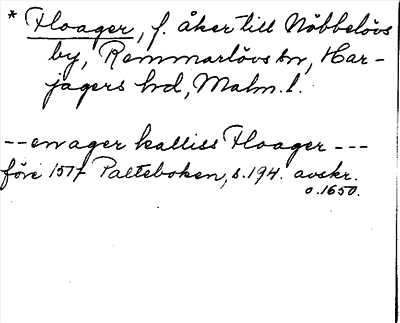 * Floager, f. åker till Nöbbelövs
by, Remmarlövs sn, Har-
jagers hd, Malm. l.
-- en ager kalliss Floager ---
före 1517 Palteboken, s. 194. avskr.
o. 1650.